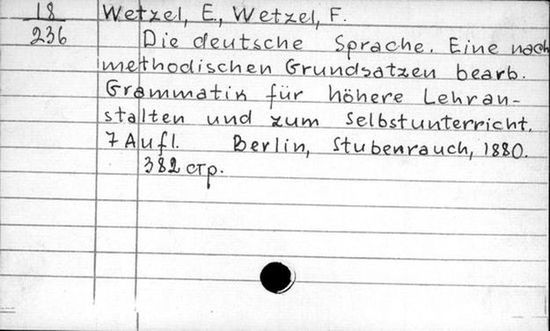 18
236
Wetzel, E., Wetzel, F.
Die deutsche Sprache. Eine nach
methodischen Grundsatzen bearb.
Grammatik für höhere Lehran-
stalten und zum Selbstunterricht.
7 Aufl. Berlin, Stubenrauch, 1880.
382 стр.